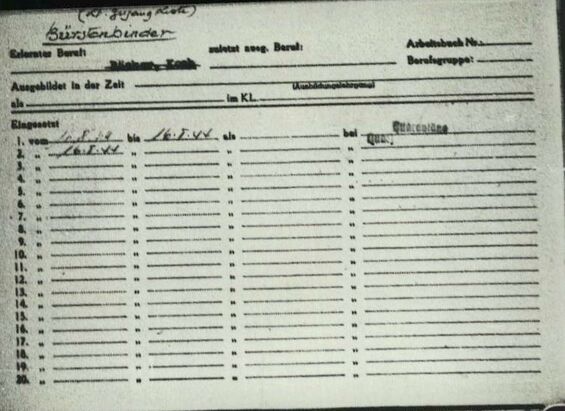 (Lt. Zugang Liste)
Bürstenbinder
Erlernter Beruf: Bäcker, Koch zuletzt ausg. Beruf: Arbeitsbuch Nr.:
Berufsgruppe:
Ausgebildet in der Zeit (Ausbildungslehrgang)
als im KL.
Eingesetzt Quarantäne
1. vom 8. bis 16.8.44 als bei
2. " 16.8.44 " " "
3. " " " "
4. " " " "
5. " " " "
6. " " " "
7. " " " "
8. " " " "
9. " " " "
10. " " " "
11. " " " "
12. " " " "
13. " " " "
14. " " " "
15. " " " "
16. " " " "
17. " " " "
18. " " " "
19. " " " "
20. " " " "